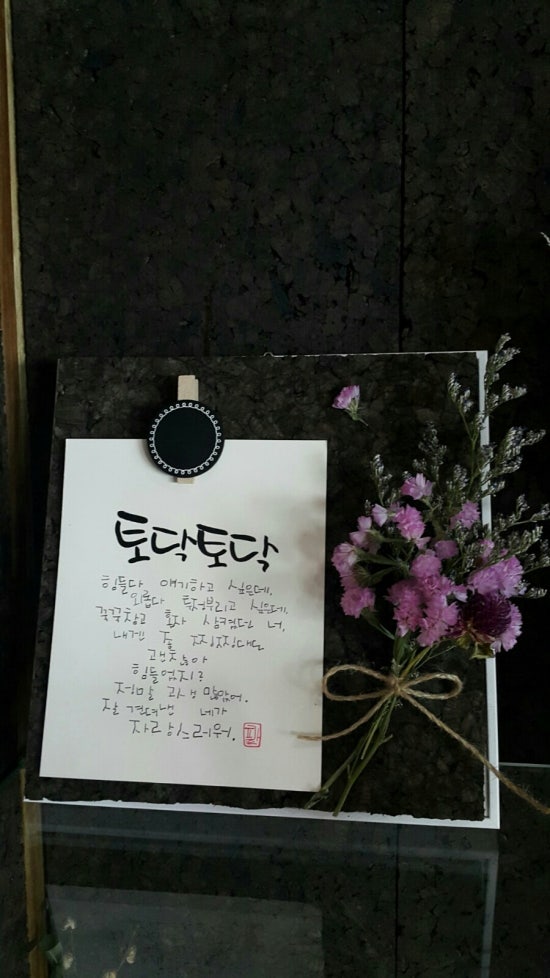 토닥토닥
힘들다 얘기하고 싶은데,
외롭다 투정부리고 싶은데,
꾹꾹참고 혼자 삼켰던 너,
내겐 좀 찡찡대도
괜찮아
힘들었지?
정말 고생 많았어.
잘 견뎌낸 네가
자랑스러워.